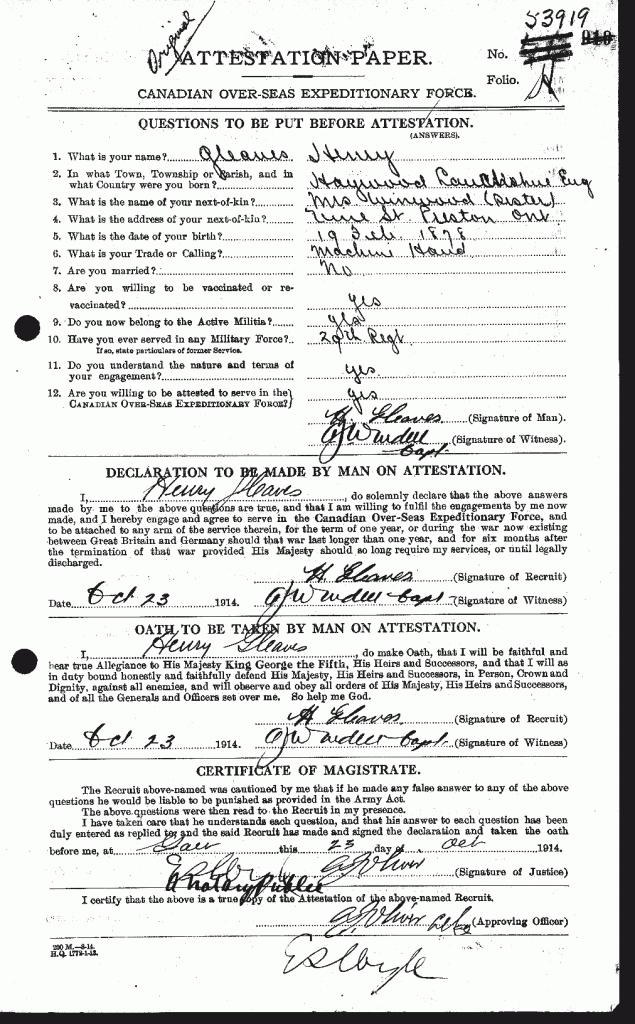 Original
ATTESTATION PAPER.
No. 53919
Folio. H
CANADIAN OVER-SEAS EXPEDITIONARY FORCE.
QUESTIONS TO BE PUT BEFORE ATTESTATION.
(ANSWERS).
1. What is your name? Gleaves Henry
2. In what Town, Township or Parish, and in
what Country were you born? Haywood Lancashire Eng
3. What is the name of your next-of-kin? Mrs Winwood (Sister)
4. What is the address of your next-of-kin? St. Preston Ont
5. What is the date of your birth? 19 Feb. 1878
6. What is your Trade or Calling? Machine Hand
7. Are you married? No
8. Are you willing to be vaccinated or re-
vaccinated? yes
9. Do you now belong to the Active Militia? yes
10. Have you ever served in any Military Force? 29th Regt
If so, state particulars of former Service.
11. Do you understand the nature and terms of
your engagement? yes
12. Are you willing to be attested to serve in the
CANADIAN OVER-SEAS EXPEDITIONARY FORCE? yes
H Gleaves (Signature of Man).
Capt. (Signature of Witness).
DECLARATION TO BE MADE BY MAN ON ATTESTATION.
I, Henry Gleaves, do solemnly declare that the above answers
made by me to the above questions are true, and that I am willing to fulfil the engagements by me now
made, and I hereby engage and agree to serve in the Canadian Over-Seas Expeditionary Force, and
to be attached to any arm of the service therein, for the term of one year, or during the war now existing
between Great Britain and Germany should that war last longer than one year, and for six months after
the termination of that war provided His Majesty should so long require my services, or until legally
discharged.
H Gleaves (Signature of Recruit)
Date Oct 23 1914. Capt (Signature of Witness)
OATH TO BE TAKEN BY MAN ON ATTESTATION.
I, Henry Gleaves, do make Oath, that I will be faithful and
bear true Allegiance to His Majesty King George the Fifth, His Heirs and Successors, and that I will as
in duty bound honestly and faithfully defend His Majesty, His Heirs and Successors, in Person, Crown and
Dignity, against all enemies, and will observe and obey all orders of His Majesty, His Heirs and Successors,
and of all the Generals and Officers set over me. So help me God.
H Gleaves (Signature of Recruit)
Date Oct 23 1914. Capt (Signature of Witness)
CERTIFICATE OF MAGISTRATE.
The Recruit above-named was cautioned by me that if he made any false answer to any of the above
questions he would be liable to be punished as provided in the Army Act.
The above questions were then read to the Recruit in my presence.
I have taken care that he understands each question, and that his answer to each question has been
duly entered as replied to, and the said Recruit has made and signed the declaration and taken the oath
before me, at Galt this 23 day of Oct 1914.
A Notary Public (Signature of Justice)
I certify that the above is a true copy of the Attestation of the above-named Recruit.
Oliver (Approving Officer)
200 M.—8-14.
H.Q. 1772-1-13.